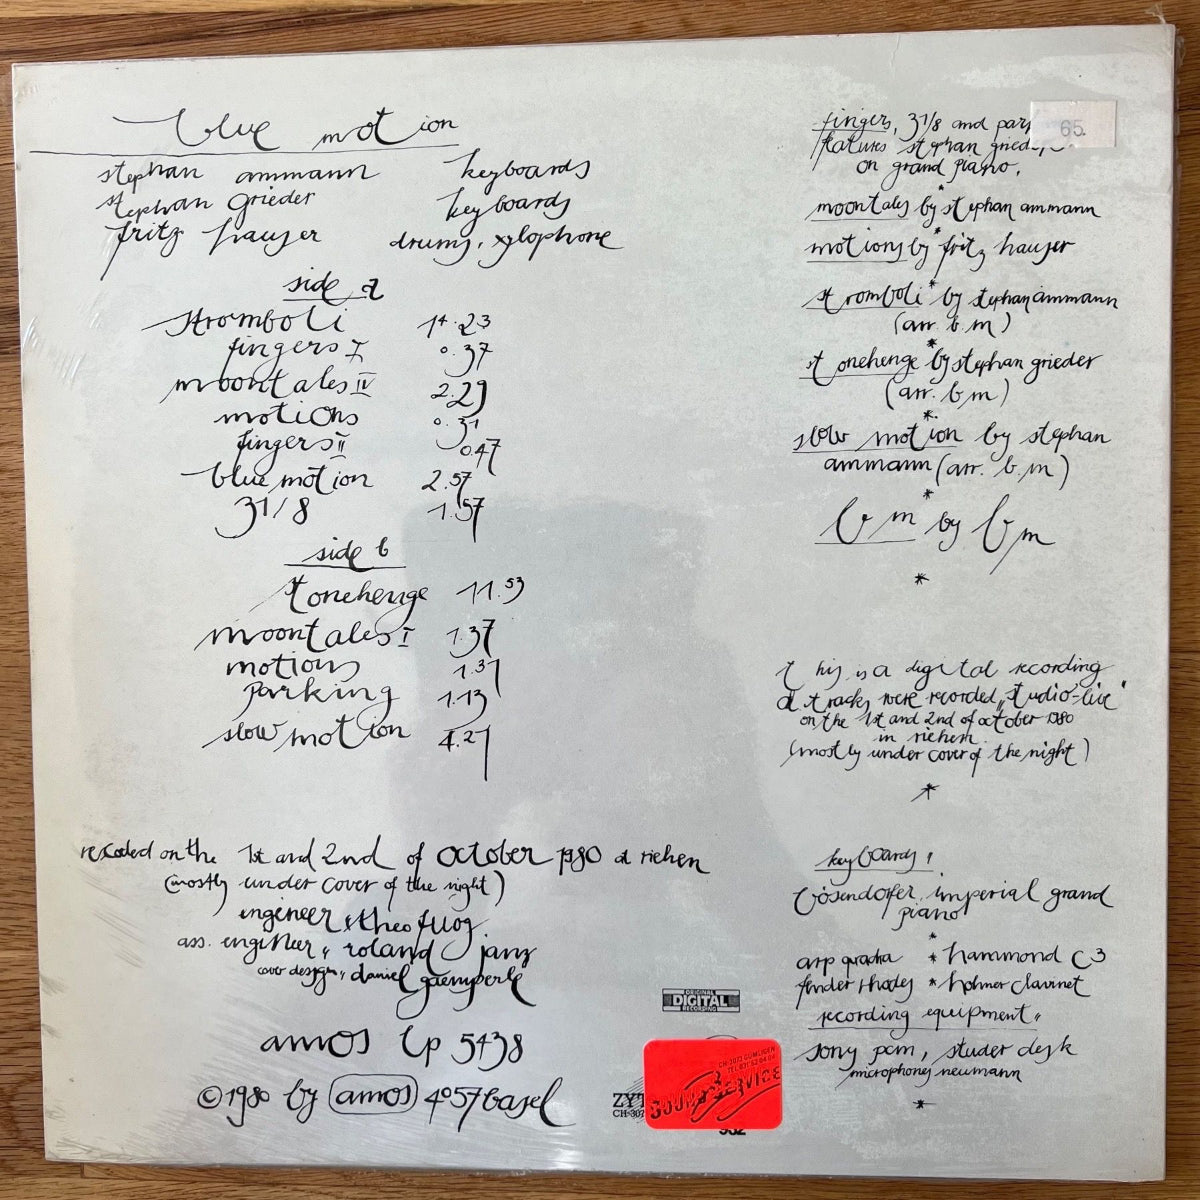 blue motion
stephan ammann keyboards
stephan grieder keyboards
fritz hauser drums, xylophone
side a
stromboli 14.23
fingers I 0.37
moontales IV 2.29
motions 0.31
fingers II 0.47
blue motion 2.57
31/8 1.57
side b
stonehenge 11.53
moontales I 1.37
motions 1.31
parking 1.13
slow motion 4.21
recorded on the 1st and 2nd of october 1980 at riehen
(mostly under cover of the night)
engineer, theo fuog
ass. engineer, roland janz
cover design, daniel gaemperle
amos lp 5438
© 1980 by amos 4057 basel
65.
fingers, 31/8 and
features stephan
on grand piano.
*
moontales by stephan ammann
*
motions by fritz hauser
*
stromboli by stephan ammann
(arr. b.m)
*
stonehenge by stephan grieder
(arr. b.m)
*
slow motion by stephan
ammann (arr. b.m)
*
b m by b m
*
this is a digital recording
all tracks were recorded „studio-live"
on the 1st and 2nd of october 1980
in riehen
(mostly under cover of the night)
*
keyboards!
bösendorfer imperial grand
piano
*
arp quadra * hammond C3
fender rhodes * hohner clavinet
recording equipment,
sony pcm, studer desk
microphones neumann
*
ORIGINAL
DIGITAL
RECORDING
CH-3073 GÜMLIGEN
SOUND SERVICE
ZYT
CH-307